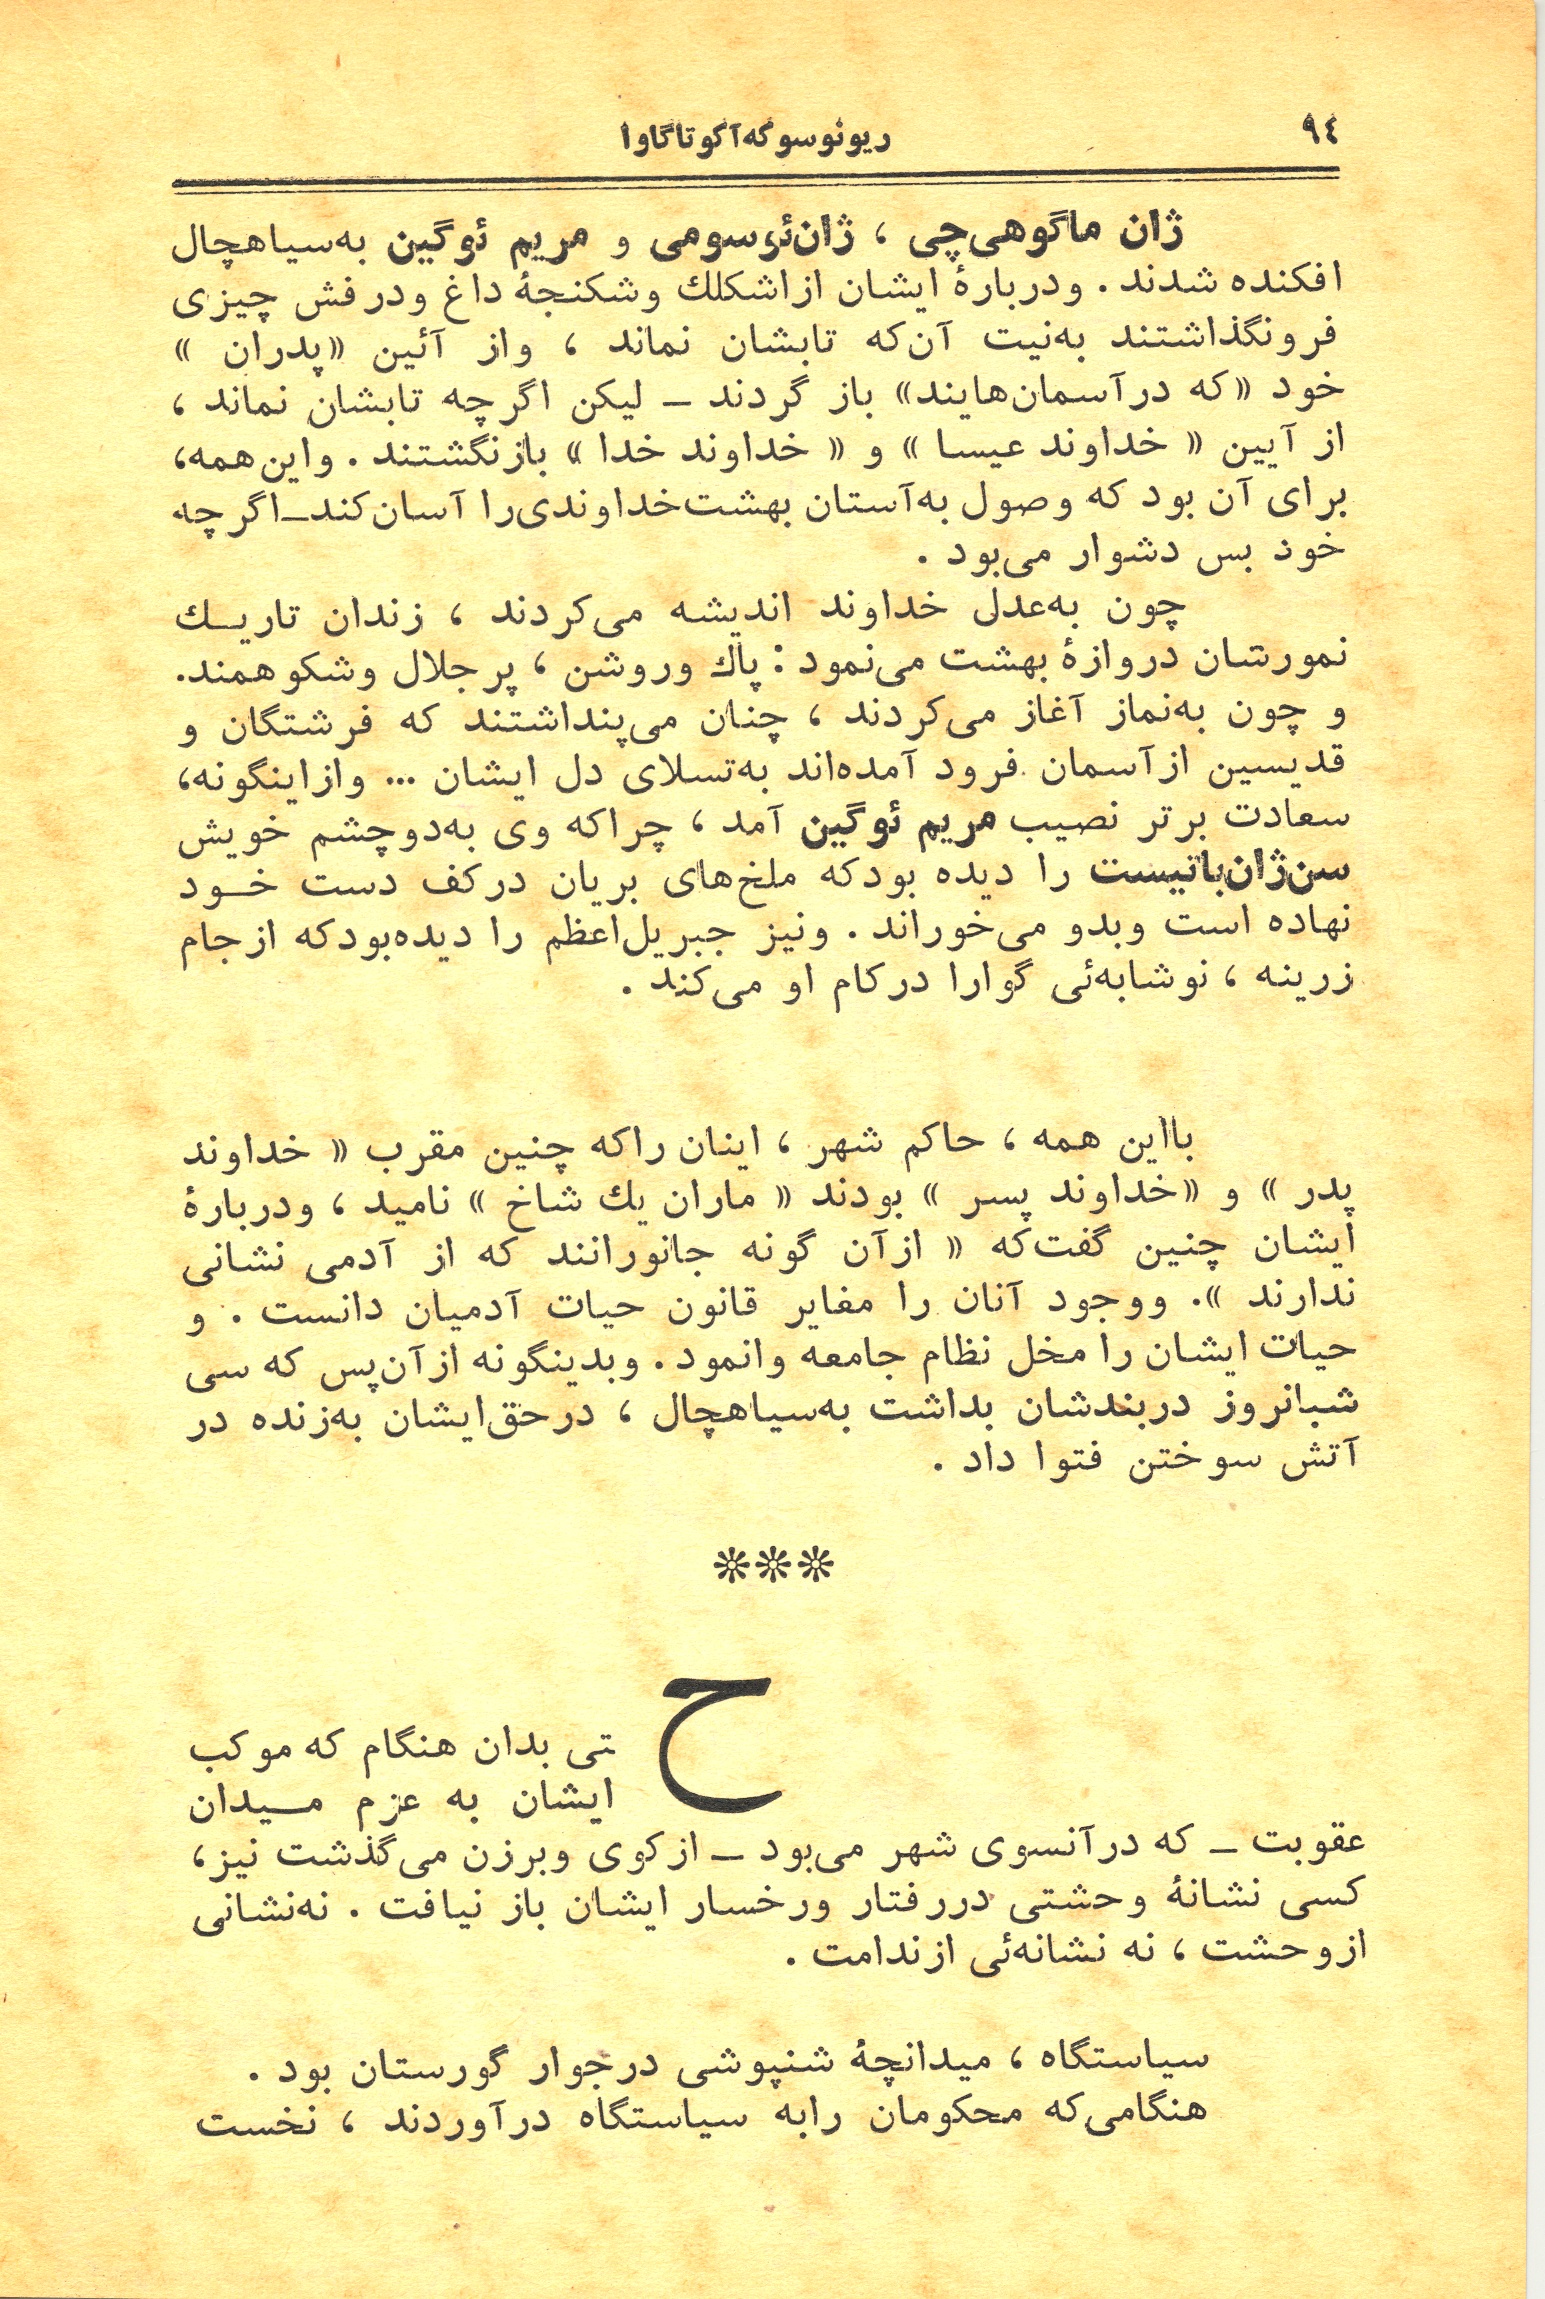 ۹٤
ریونوسوکه‌آکوتاگاوا
ژان ماگوهی‌چی ، ژان‌ئرسومی و مریم ئوگین به‌سیاهچال
افکنده شدند . ودربارهٔ ایشان ازاشکلك وشکنجهٔ داغ ودرفش چیزی
فرونگذاشتند به‌نیت آن‌که تابشان نماند ، واز آئین «پدران »
خود «که درآسمان‌هایند» باز گردند ــ لیکن اگرچه تابشان نماند ،
از آیین « خداوند عیسا » و « خداوند خدا » بازنگشتند . واین‌همه،
برای آن بود که وصول به‌آستان بهشت‌خداوندی‌را آسان‌کند ــ اگرچه
خود بس دشوار می‌بود .
چون به‌عدل خداوند اندیشه می‌کردند ، زندان تاریـك
نمورشان دروازهٔ بهشت می‌نمود : پاك وروشن ، پرجلال وشکوهمند.
و چون به‌نماز آغاز می‌کردند ، چنان می‌پنداشتند که فرشتگان و
قدیسین ازآسمان فرود آمده‌اند به‌تسلای دل ایشان ... وازاینگونه،
سعادت برتر نصیب مریم ئوگین آمد ، چراکه وی به‌دوچشم خویش
سن‌ژان‌باتیست را دیده بودکه ملخ‌های بریان درکف دست خـود
نهاده است وبدو می‌خوراند . ونیز جبریل‌اعظم را دیده‌بودکه ازجام
زرینه ، نوشابه‌ئی گوارا درکام او می‌کند .
بااین همه ، حاکم شهر ، اینان راکه چنین مقرب « خداوند
پدر » و «خداوند پسر » بودند « ماران یك شاخ » نامید ، ودربارهٔ
ایشان چنین گفت‌که « ازآن گونه جانورانند که از آدمی نشانی
ندارند ». ووجود آنان را مغایر قانون حیات آدمیان دانست . و
حیات ایشان را مخل نظام جامعه وانمود . وبدینگونه ازآن‌پس که سی
شبانروز دربندشان بداشت به‌سیاهچال ، درحق‌ایشان به‌زنده در
آتش سوختن فتوا داد .
***
حتی بدان هنگام که موکب
ایشان به عزم میـدان
عقوبت ــ که درآنسوی شهر می‌بود ــ ازکوی وبرزن می‌گذشت نیز،
کسی نشانهٔ وحشتی دررفتار ورخسار ایشان باز نیافت . نه‌نشانی
ازوحشت ، نه نشانه‌ئی ازندامت .
سیاستگاه ، میدانچهٔ شنپوشی درجوار گورستان بود .
هنگامی‌که محکومان رابه سیاستگاه درآوردند ، نخست